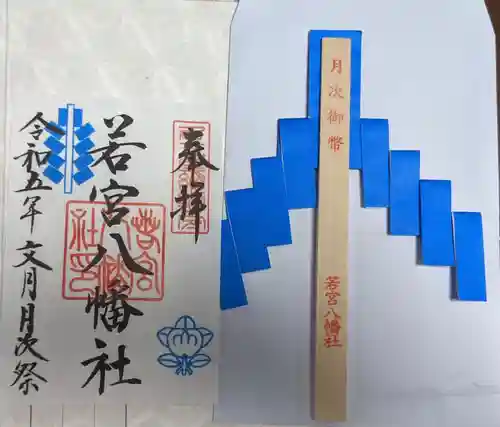 奉拝
若宮八幡社
若宮八幡社印
令和五年 文月月次祭
月次御幣
若宮八幡社